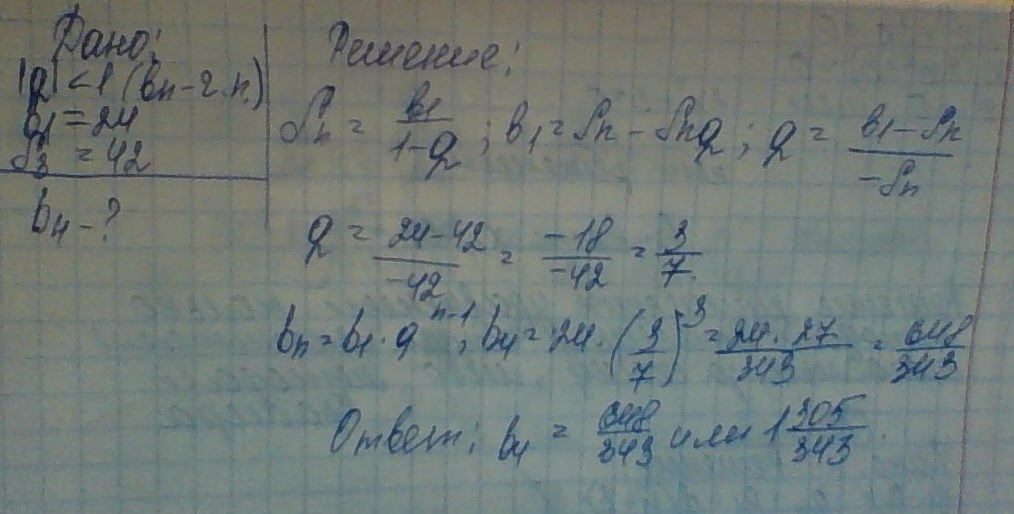 Дано:
|q| < 1 (bn - г.п.)
b1 = 24
S3 = 42
b4 - ?
Решение:
Sn = b1/(1-q); b1 = Sn - Snq; q = (b1 - Sn)/(-Sn)
q = (24-42)/(-42) = (-18)/(-42) = 3/7.
bn = b1 · q^(n-1); b4 = 24 · (3/7)^3 = (24 · 27)/343 = 648/343
Ответ: b4 = 648/343 или 1 305/343.